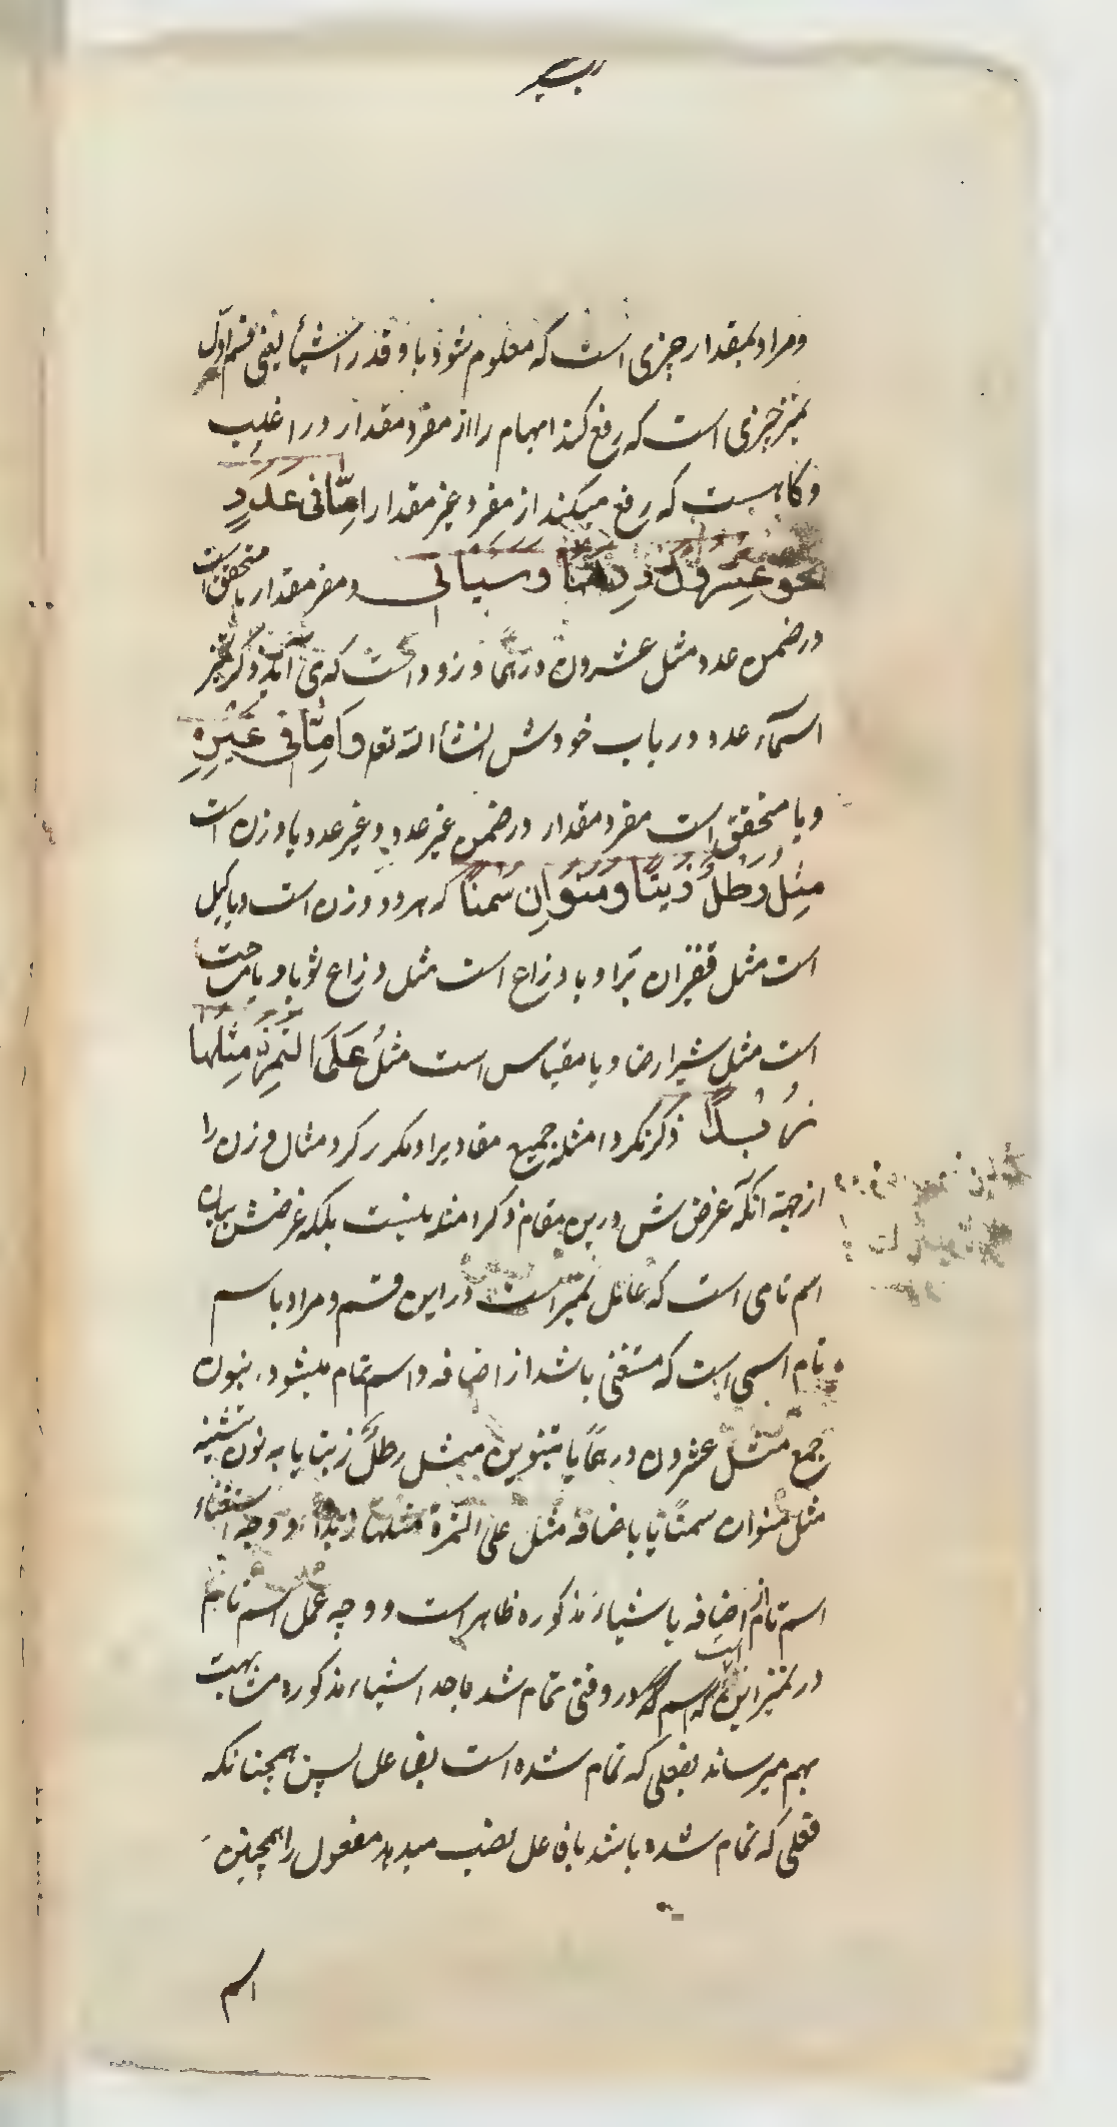 ومراد بمقدار چیزی است که معلوم شود باو قدر اشیأ یعنی قسم اوّل
تمیز چیزی است که رفع کند ابهام را از مفرد مقدار در اغلب
و گاهست که رفع میکند از مفرد غیر مقدار امّا فی عَدَدٍ
نحو عِشرونَ دِرهمًا وسیأتی ومفرد مقدار یا متحقق است
در ضمن عدد مثل عشرون درهمًا و زود است که می آید ذکر تمیز
اسمآء عدد در باب خودش انشأ الله تعه وَامِّا فی غَیْرِهِ
ویا متحقق است مفرد مقدار در ضمن غیر عدد و غیر عدد یا وزن است
مِثلُ رَطلٌ زَیتًا ومَنَوانِ سَمنًا که هر دو وزن است ویا کیل
است مثل قفیزان بَرّا ویا ذراع است مثل ذراع ثوبا ویا مساحت
است مثل شبر ارضا ویا مقیاس است مثلُ عَلَی التَمرَةِ مِثلُها
زُبْدًا ذکر نکرد امثله جمیع مقادیر را ومکرر کرد مثال وزن را
از جهة انکه غرضش درین مقام ذکر امثله نیست بلکه غرضش بیان
اسم تامی است که عامل تمیز است در این قسم ومراد باسم
تام اسمی است که مستغنی باشد از اضافه واسم تمام میشود بنون
جمع مثل عشرون درهمًا یا بتنوین مثل رطلٌ زیتا یا به نون تثنیه
مثل منوان سمنًا یا باضافه مثل علی التمرة مثلها زبدًا و وجه استغناء
اسم تام از اضافه باشیاء مذکوره ظاهر است و وجه عمل اسم تام
در تمیز این است که اسم در وقتی تمام شد باحد اشیاء مذکوره مشابهت
بهم میرساند بفعلی که تمام شده است بفاعل پس همچنانکه
فعلی که تمام شده باشد بفاعل نصب میدهد مفعول را همچنین
اسم